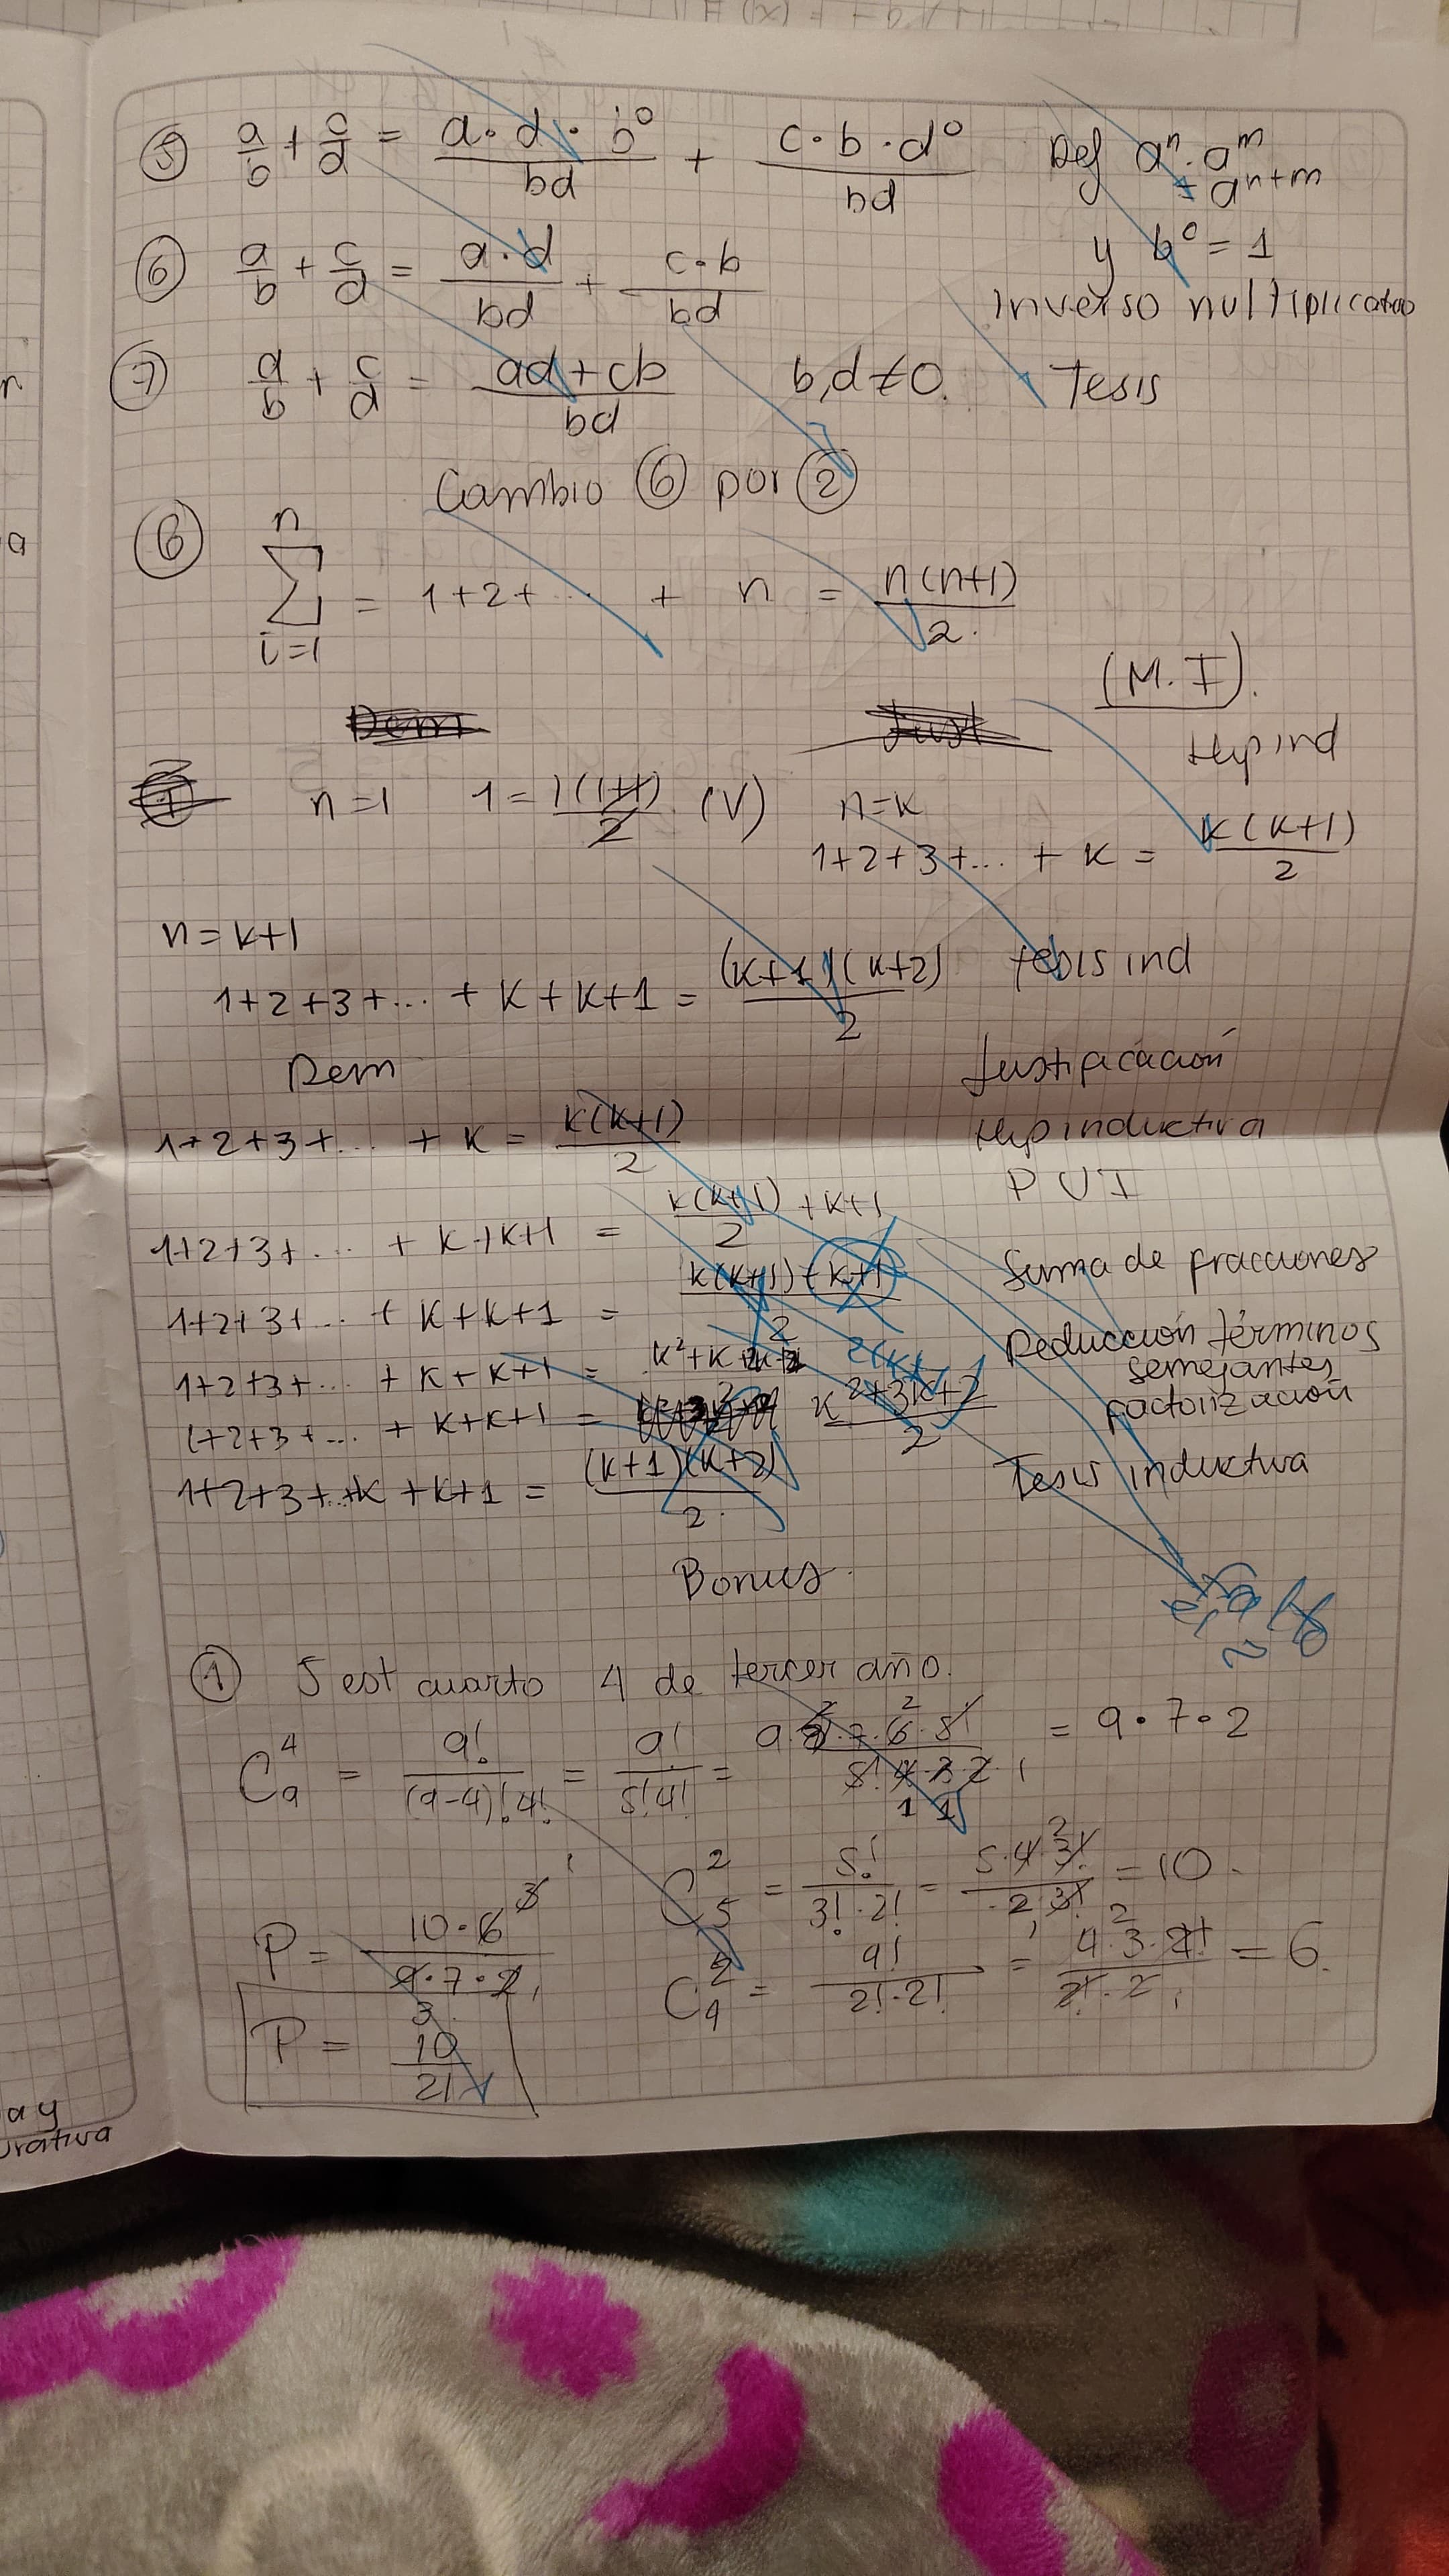 ⑤ a/b + c/d = a·d·b⁰/bd + c·b·d⁰/bd Def aⁿ·aᵐ = aⁿ⁺ᵐ
y b⁰ = 1
⑥ a/b + c/d = a·d/bd + c·b/bd Inverso multiplicativo
⑦ a/b + c/d = ad+cb/bd b,d≠0. Tesis
Cambio ⑥ por ②
⑥ n Σ i=1 = 1+2+... + n = n(n+1)/2.
(M.I).
Dem Just
Hip ind
n=1 1=1(1+1)/2 (V) n=k
1+2+3+... + k = k(k+1)/2
n=k+1
1+2+3+... + k+k+1 = (k+1)(k+2)/2 tesis ind
Dem Justificación
1+2+3+... + k = k(k+1)/2 Hip inductiva
P U I
1+2+3+... + k+k+1 = k(k+1)/2 + k+1
1+2+3+... + k+k+1 = k(k+1)+k+1/2 Suma de fracciones
1+2+3+... + k+k+1 = k²+k+2k+2 2(k+1) Reducción términos semejantes,
1+2+3+... + k+k+1 = k²+3k+2/2 factorización
1+2+3+...+k+k+1 = (k+1)(k+2)/2. Tesis inductiva
Bonus
① 5 est cuarto 4 de tercer año.
C₉⁴ = 9!/(9-4)!4! = 9!/5!4! = 9·8·7·6·5!/5!4·3·2·1 = 9·7·2
C₅² = 5!/3!·2! = 5·4·3!/2·3! = 10
P = 10·6/9·7·2
C₄² = 4!/2!·2! = 4·3·2!/2!·2 = 6.
P = 10/21
ay